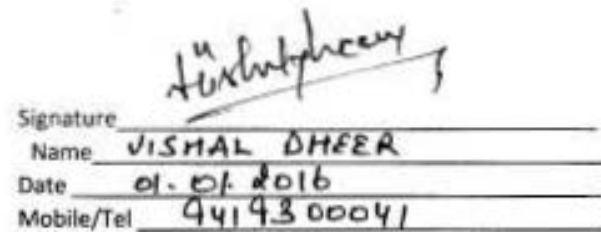 Signature
Name VISHAL DHEER
Date 01.01.2016
Mobile/Tel 9419300041